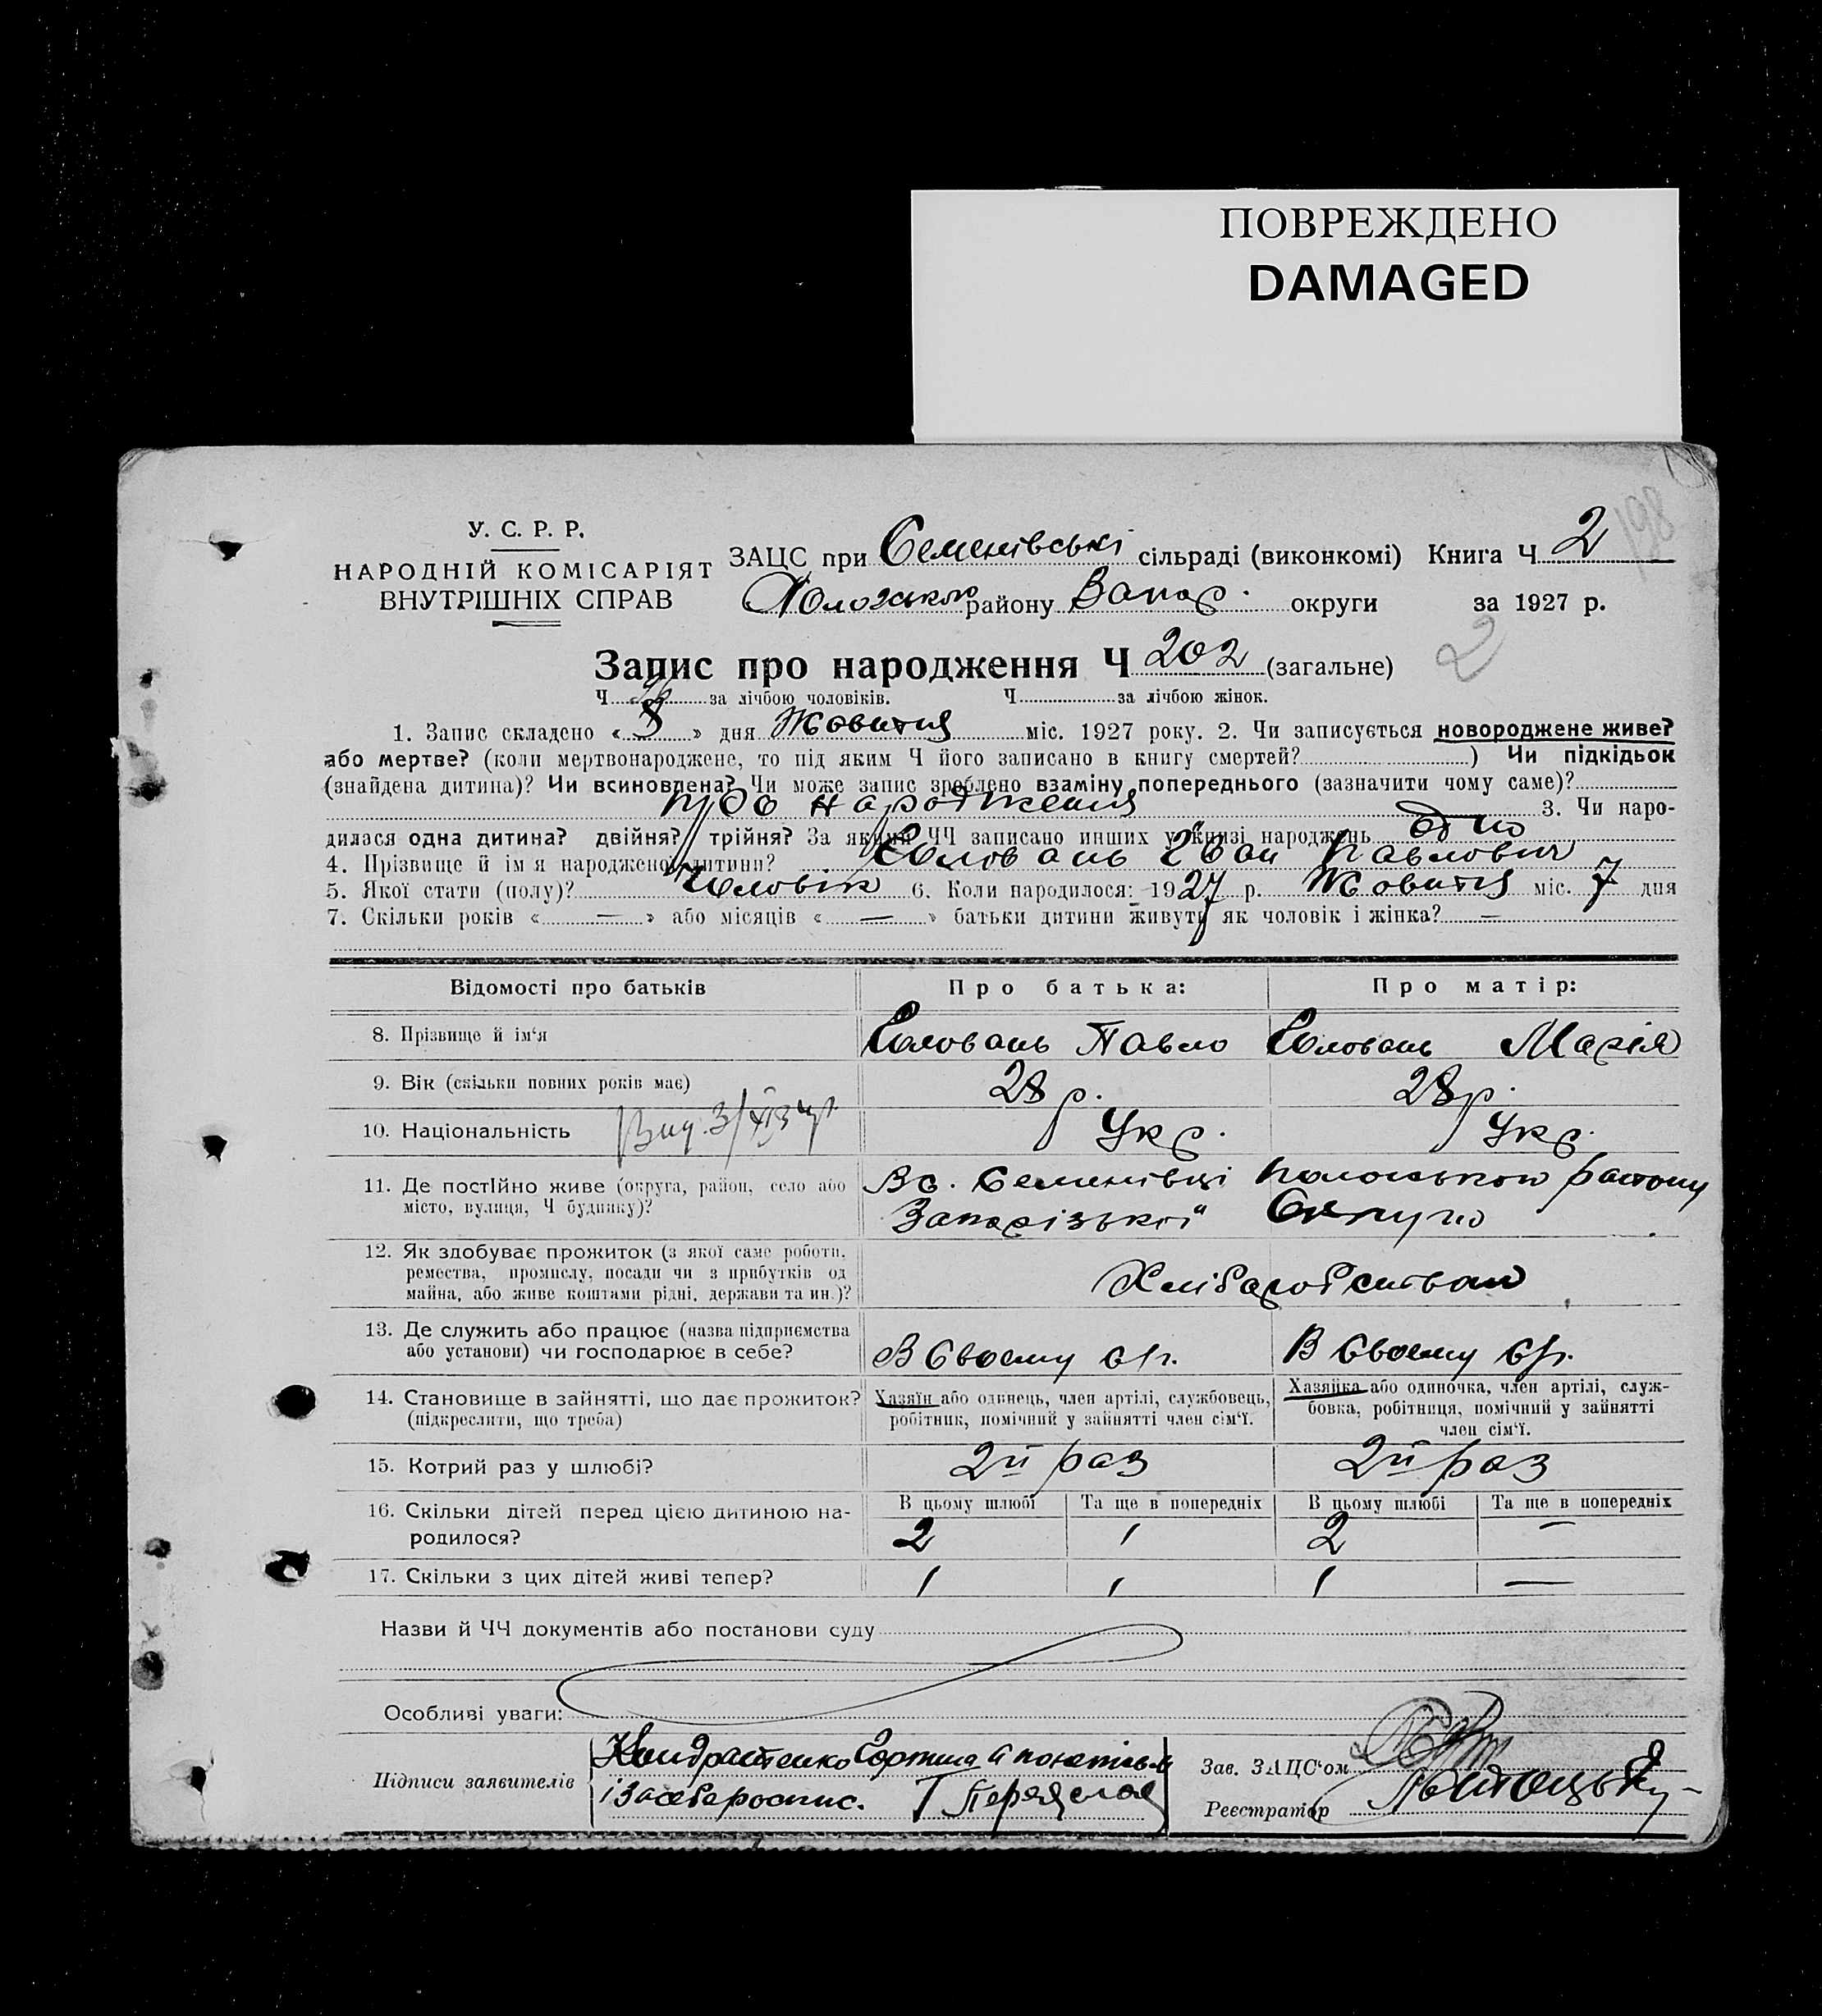 ПОВРЕЖДЕНО
DAMAGED
198
У. С. Р. Р.
НАРОДНІЙ КОМІСАРІЯТ
ВНУТРІШНІХ СПРАВ
ЗАЦС при Семенівські сільраді (виконкомі) Книга Ч 2
району Запор. округи за 1927 р.
2
Запис про народження Ч 202 (загальне)
Ч за лічбою чоловіків. Ч за лічбою жінок.
1. Запис складено « 8 » дня Жовтня міс. 1927 року. 2. Чи записується новороджене живе?
або мертве? (коли мертвонароджене, то під яким Ч його записано в книгу смертей? ) Чи підкідьок
(знайдена дитина)? Чи всиновлена? Чи може запис зроблено взаміну попереднього (зазначити чому саме)?
про народження 3. Чи наро-
дилася одна дитина? двійня? трійня? За якими ЧЧ записано инших у книзі народжень одно
4. Прізвище й ім'я народженої дитини? Головань Іван Павлович
5. Якої стати (полу)? Чоловік 6. Коли народилося: 1927 р. Жовтня міс. 7 дня
7. Скільки років « — » або місяців « — » батьки дитини живуть як чоловік і жінка? —
Відомості про батьків Про батька: Про матір:
8. Прізвище й ім'я Головань Павло Головань Марія
9. Вік (скільки повних років має) 28 р. 28 р.
10. Національність Укр. Укр.
11. Де постійно живе (округа, район, село або Вс. Семенівці Пологського району
місто, вулиця, Ч будинку)? Запорізької Округи
12. Як здобуває прожиток (з якої саме роботи,
ремества, промислу, посади чи з прибутків од
майна, або живе коштами рідні, держави та ин.)? Хліборобством
13. Де служить або працює (назва підприємства
або установи) чи господарює в себе? В Своему гр. В Своему гр.
14. Становище в зайнятті, що дає прожиток? Хазяїн або одинець, член артілі, службовець, Хазяйка або одиночка, член артілі, служ-
(підкреслити, що треба) робітник, помічний у зайнятті член сім'ї. бовка, робітниця, помічний у зайнятті
член сім'ї.
15. Котрий раз у шлюбі? 2й раз 2й раз
16. Скільки дітей перед цією дитиною на- В цьому шлюбі Та ще в попередніх В цьому шлюбі Та ще в попередніх
родилося? 2 1 2 —
17. Скільки з цих дітей живі тепер? 1 1 1 —
Назви й ЧЧ документів або постанови суду
Особливі уваги:
Підписи заявителів
Зав. ЗАЦС'ом
Реєстратор